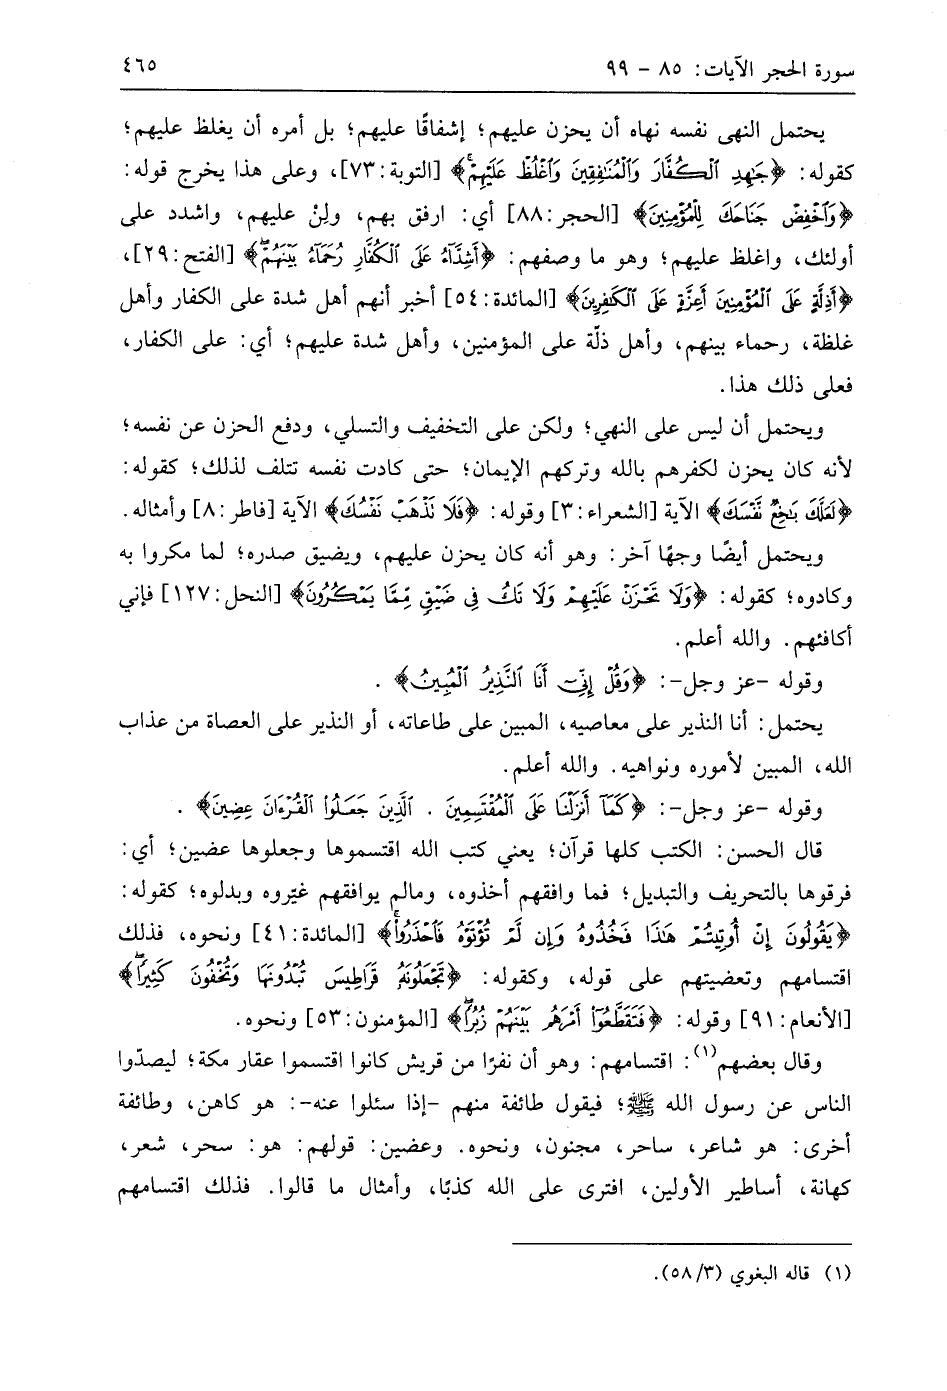 سورة الحجر الآيات: ٨٥ - ٩٩ ٤٦٥
يحتمل النهى نفسه نهاه أن يحزن عليهم؛ إشفاقًا عليهم؛ بل أمره أن يغلظ عليهم؛
كقوله: ﴿جَٰهِدِ ٱلۡكُفَّارَ وَٱلۡمُنَٰفِقِينَ وَٱغۡلُظۡ عَلَيۡهِمۡۚ﴾ [التوبة:٧٣]، وعلى هذا يخرج قوله:
﴿وَٱخۡفِضۡ جَنَاحَكَ لِلۡمُؤۡمِنِينَ﴾ [الحجر:٨٨] أي: ارفق بهم، ولِنْ عليهم، واشدد على
أولئك، واغلظ عليهم؛ وهو ما وصفهم: ﴿أَشِدَّآءُ عَلَى ٱلۡكُفَّارِ رُحَمَآءُ بَيۡنَهُمۡۖ﴾ [الفتح:٢٩]،
﴿أَذِلَّةٍ عَلَى ٱلۡمُؤۡمِنِينَ أَعِزَّةٍ عَلَى ٱلۡكَٰفِرِينَ﴾ [المائدة:٥٤] أخبر أنهم أهل شدة على الكفار وأهل
غلظة، رحماء بينهم، وأهل ذلّة على المؤمنين، وأهل شدة عليهم؛ أي: على الكفار،
فعلى ذلك هذا.
ويحتمل أن ليس على النهي؛ ولكن على التخفيف والتسلي، ودفع الحزن عن نفسه؛
لأنه كان يحزن لكفرهم بالله وتركهم الإيمان؛ حتى كادت نفسه تتلف لذلك؛ كقوله:
﴿لَعَلَّكَ بَٰخِعٞ نَّفۡسَكَ﴾ الآية [الشعراء:٣] وقوله: ﴿فَلَا تَذۡهَبۡ نَفۡسُكَ﴾ الآية [فاطر:٨] وأمثاله.
ويحتمل أيضًا وجهًا آخر: وهو أنه كان يحزن عليهم، ويضيق صدره؛ لما مكروا به
وكادوه؛ كقوله: ﴿وَلَا تَحۡزَنۡ عَلَيۡهِمۡ وَلَا تَكُ فِي ضَيۡقٖ مِّمَّا يَمۡكُرُونَ﴾ [النحل:١٢٧] فإني
أكافئهم. والله أعلم.
وقوله -عز وجل-: ﴿وَقُلۡ إِنِّيٓ أَنَا ٱلنَّذِيرُ ٱلۡمُبِينُ﴾ .
يحتمل: أنا النذير على معاصيه، المبين على طاعاته، أو النذير على العصاة من عذاب
الله، المبين لأموره ونواهيه. والله أعلم.
وقوله -عز وجل-: ﴿كَمَآ أَنزَلۡنَا عَلَى ٱلۡمُقۡتَسِمِينَ . ٱلَّذِينَ جَعَلُواْ ٱلۡقُرۡءَانَ عِضِينَ﴾ .
قال الحسن: الكتب كلها قرآن؛ يعني كتب الله اقتسموها وجعلوها عضين؛ أي:
فرقوها بالتحريف والتبديل؛ فما وافقهم أخذوه، ومالم يوافقهم غيّروه وبدلوه؛ كقوله:
﴿يَقُولُونَ إِنۡ أُوتِيتُمۡ هَٰذَا فَخُذُوهُ وَإِن لَّمۡ تُؤۡتَوۡهُ فَٱحۡذَرُواْۚ﴾ [المائدة:٤١] ونحوه، فذلك
اقتسامهم وتعضيتهم على قوله، وكقوله: ﴿تَجۡعَلُونَهُۥ قَرَاطِيسَ تُبۡدُونَهَا وَتُخۡفُونَ كَثِيرٗاۖ﴾
[الأنعام:٩١] وقوله: ﴿فَتَقَطَّعُوٓاْ أَمۡرَهُم بَيۡنَهُمۡ زُبُرٗاۖ﴾ [المؤمنون:٥٣] ونحوه.
وقال بعضهم(١): اقتسامهم: وهو أن نفرًا من قريش كانوا اقتسموا عقار مكة؛ ليصدّوا
الناس عن رسول الله ﷺ؛ فيقول طائفة منهم -إذا سئلوا عنه-: هو كاهن، وطائفة
أخرى: هو شاعر، ساحر، مجنون، ونحوه. وعضين: قولهم: هو: سحر، شعر،
كهانة، أساطير الأولين، افترى على الله كذبًا، وأمثال ما قالوا. فذلك اقتسامهم
(١) قاله البغوي (٥٨/٣).